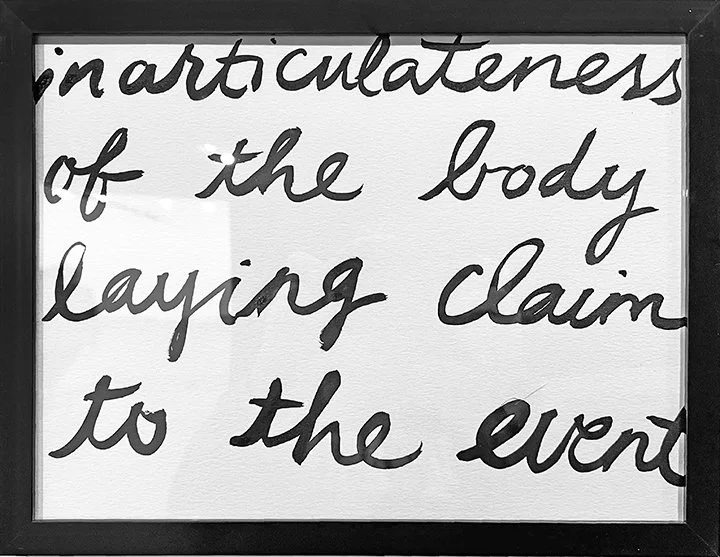 inarticulateness
of the body
laying claim
to the event